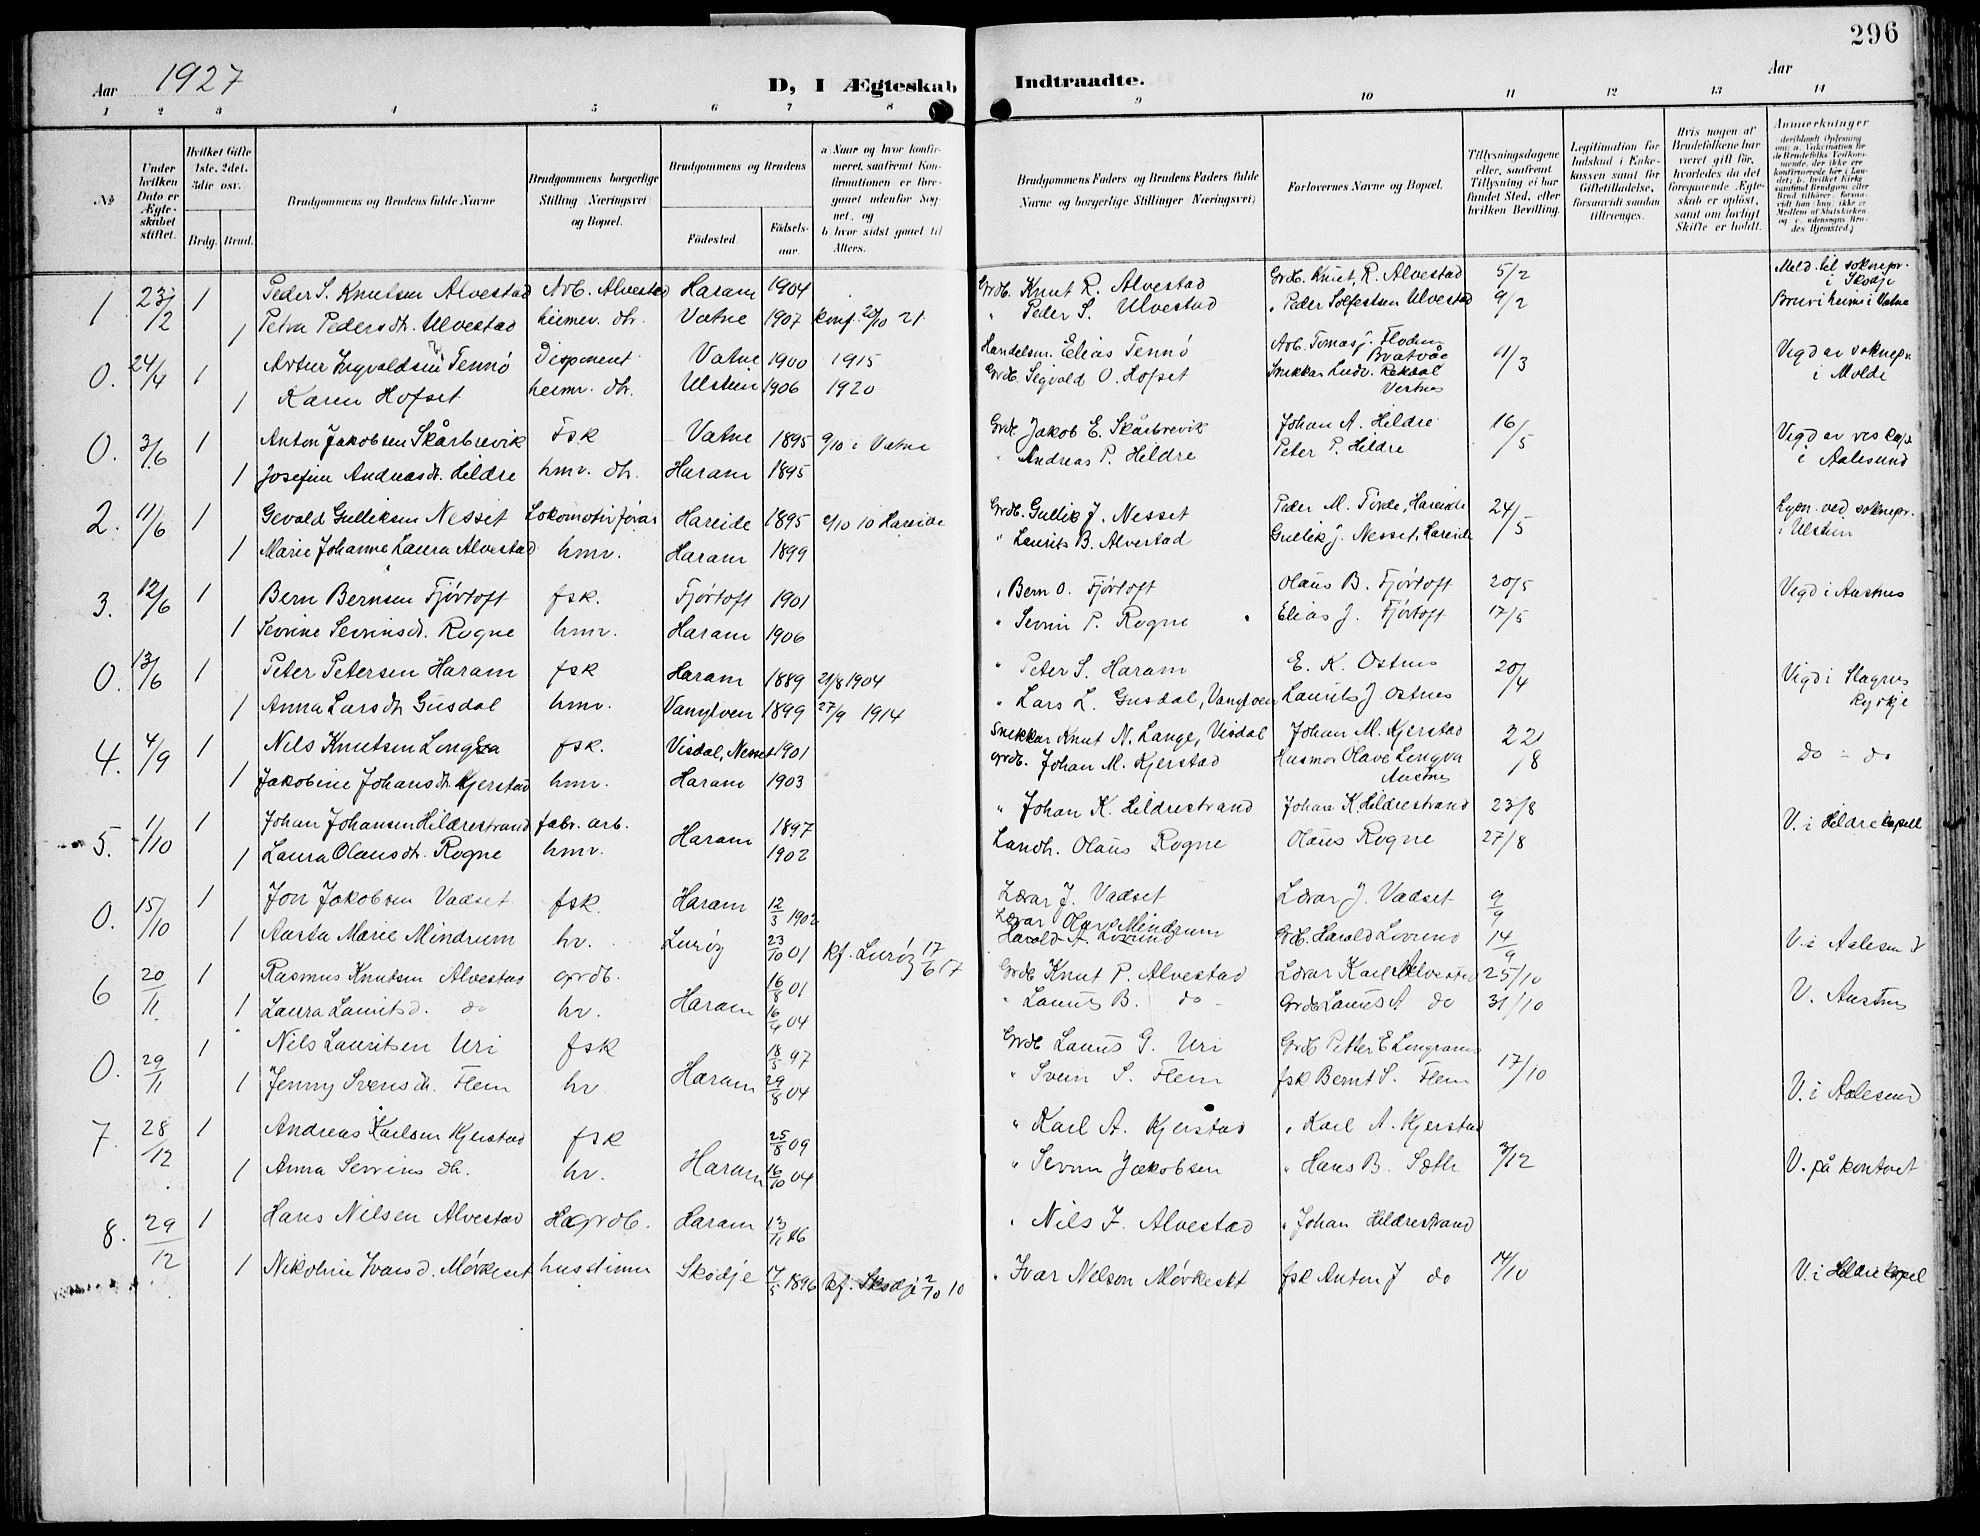 296
Aar 1927
D, I Ægteskab Indtraadte.
Aar
1 2 3 4 5 6 7 8 9 10 11 12 13 14
No
Under hvilken Dato er Ægteskabet stiftet.
Hvilket Gifte 1ste, 2det, 3die osv.
Brdg. Brud.
Brudgommens og Brudens fulde Navne
Brudgommens borgerlige Stilling Næringsvei og Bopæl.
Brudgommens og Brudens
Fødested. Fødselsaar.
a Naar og hvor konfirmeret, saafremt Konfirmationen er foregaaet udenfor Sognet, og
b hvor sidst gaaet til Alters.
Brudgommens Faders og Brudens Faders fulde Navne og borgerlige Stillinger Næringsvei)
Forlovernes Navne og Bopæl.
Tillysningsdagene eller, saafremt Tillysning ei har fundet Sted, efter hvilken Bevilling.
Legitimation for Indskud i Enkekassen samt for Giftetilladelse, forsaavidt saadan tiltrænges.
Hvis nogen af Brudefolkene har været gift før, hvorledes da det foregaaende Ægteskab er opløst, samt om lovligt Skifte er holdt.
Anmærkninger
1 23/2 1 Peder S. Knutsen Alvestad Arb. Alvestad Haram 1904 Grdb. Knut R. Alvestad Grdb. Knut R. Alvestad 5/2 Meld. til soknepr. i Skodje
1 Petra Pedersdtr. Ulvestad heimev. dtr. Vatne 1907 konf. 20/10 21. " Peder S. Ulvestad " Peder Solfestsen Ulvestad 9/2 Brur i heime i Vatne
0. 24/4 1 Artur Ingvaldsen Tennø Disponent Vatne 1900 1915 Handelsm. Elias Tennø Arb. Tomas J. Floden Bratvåg 11/3 Vigd av soknepr. i Molde
1 Karen Hofset heimv. dtr. Ulstein 1906 1920 Grdb. Sigvald O. Hofset Snekkar Ludv. Reksal Vestnes
0. 3/6 1 Anton Jakobsen Skårbrevik Fsk Vatne 1895 9/10 i Vatne Grdb. Jakob E. Skårbrevik Johan A. Hildre 16/5 Vigd av res kap. i Aalesund
1 Josefine Andreasdt. Hildre hmv. dtr. Haram 1895 " Andreas P. Hildre Peter P. Hildre
2. 11/6 1 Gevald Gulliksen Nesset Lokomotivførar Hareide 1895 2/10 10 Hareide Grdb. Gullik J. Nesset Peder M. Tinde, Hareide 24/5 Lysn. ved soknepr. i Ulstein
1 Marie Johanne Laura Alvestad hmv. Haram 1899 " Laurits B. Alvestad Gullik J. Nesset, Hareide
3. 12/6 1 Bern Bernsen Fjørtoft fsk. Fjørtoft 1901 " Bern O. Fjørtoft Olaus B. Fjørtoft 20/5 Vigd i Austnes
1 Sevrine Sevrinsdt. Rogne hmv. Haram 1906 " Sevrin P. Rogne Elias J. Fjørtoft 17/5
0. 13/6 1 Peter Petersen Haram fsk Haram 1889 21/8 1904 " Peter S. Haram E. K. Ostnes 20/4 Vigd i Slagnes kyrkje
1 Anna Larsdtr Gusdal hmv. Vanylven 1899 27/9 1914 " Lars L. Gusdal, Vanylven Laurits J. Ostnes
4. 4/9 1 Nils Knutsen Longva fsk. Visdal, Nesset 1901 Snekkar Knut N. Lange, Visdal Johan M. Kjerstad 22/8 do - do
1 Jakobine Johansdt. Kjerstad hmv. Haram 1903 grdb. Johan M. Kjerstad Husmor Olave Longva Austnes
5. 1/10 1 Johan Johansen Hildrestrand fabr. arb. Haram 1897 " Johan K. Hildrestrand Johan K Hildrestrand 23/8 V. i Hildre kapell
1 Laura Olausdt. Rogne hmv. 1902 Landh. Olaus Rogne Olaus Rogne 27/8
0. 15/10 1 Jon Jakobsen Vadset fsk. Haram 12/3 1902 Lærar J. Vadset Lærar J. Vadset 9/9
1 Aasta Marie Mindrum hv. Lurøy 23/10 01 kf. Lurøy 17/6 17 Lærar Olav Mindrum Harald A. Lovund Grdb. Harald Lovund 14/9 V. i Aalesund
6 20/11 1 Rasmus Knutsen Alvestad grdb. Haram 16/8 01 Grdb Knut P. Alvestad Lærar Karl Alvestad 25/10 V. Austnes
1 Laura Lauritsd. do hv. 16/4 04 " Laurits B. do Grdb Laurits A do 31/10
0. 29/11 1 Nils Lauritsen Uri fsk Haram 18/5 97 Grdb Laurits G. Uri Grdb Petter E Longvanes 17/10
1 Jenny Svensdt. Flem hv 29/8 04 " Svein S. Flem fsk Bernt S. Flem V. i Aalesund
7. 28/12 1 Andreas Karlsen Kjerstad fsk Haram 25/8 09 " Karl A. Kjerstad " Karl A. Kjerstad
1 Anna Sevrins dtr. hv. 16/10 04 " Sevrin Jakobsen " Hans B. Sæth 3/12 V. på kontoret
8. 29/12 1 Hans Nilsen Alvestad grdb. Haram 13/11 86 " Nils J. Alvestad " Johan Hildrestrand
1 Nikoline Ivarsd. Mørkeset hustimmer Skodje 17/5 1896 kf. Skodje 2/10 10 " Ivar Nelson Mørkeset fsk Anton J do 14/10 V. i Hildre kapel